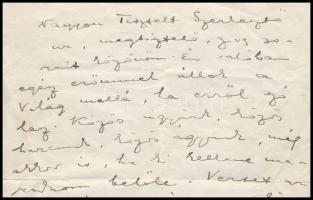 Nagyon Tisztelt Szerkesztő
ur, megtisztelő,
sorait köszönöm és valóban
egész örömmel állok a
Világ mellé, ha erről szó
lesz. Közös ügyünk, közös
harcunk, közös ügyünk, még
akkor is, ha ki kellene ma-
radnom belőle. Verset